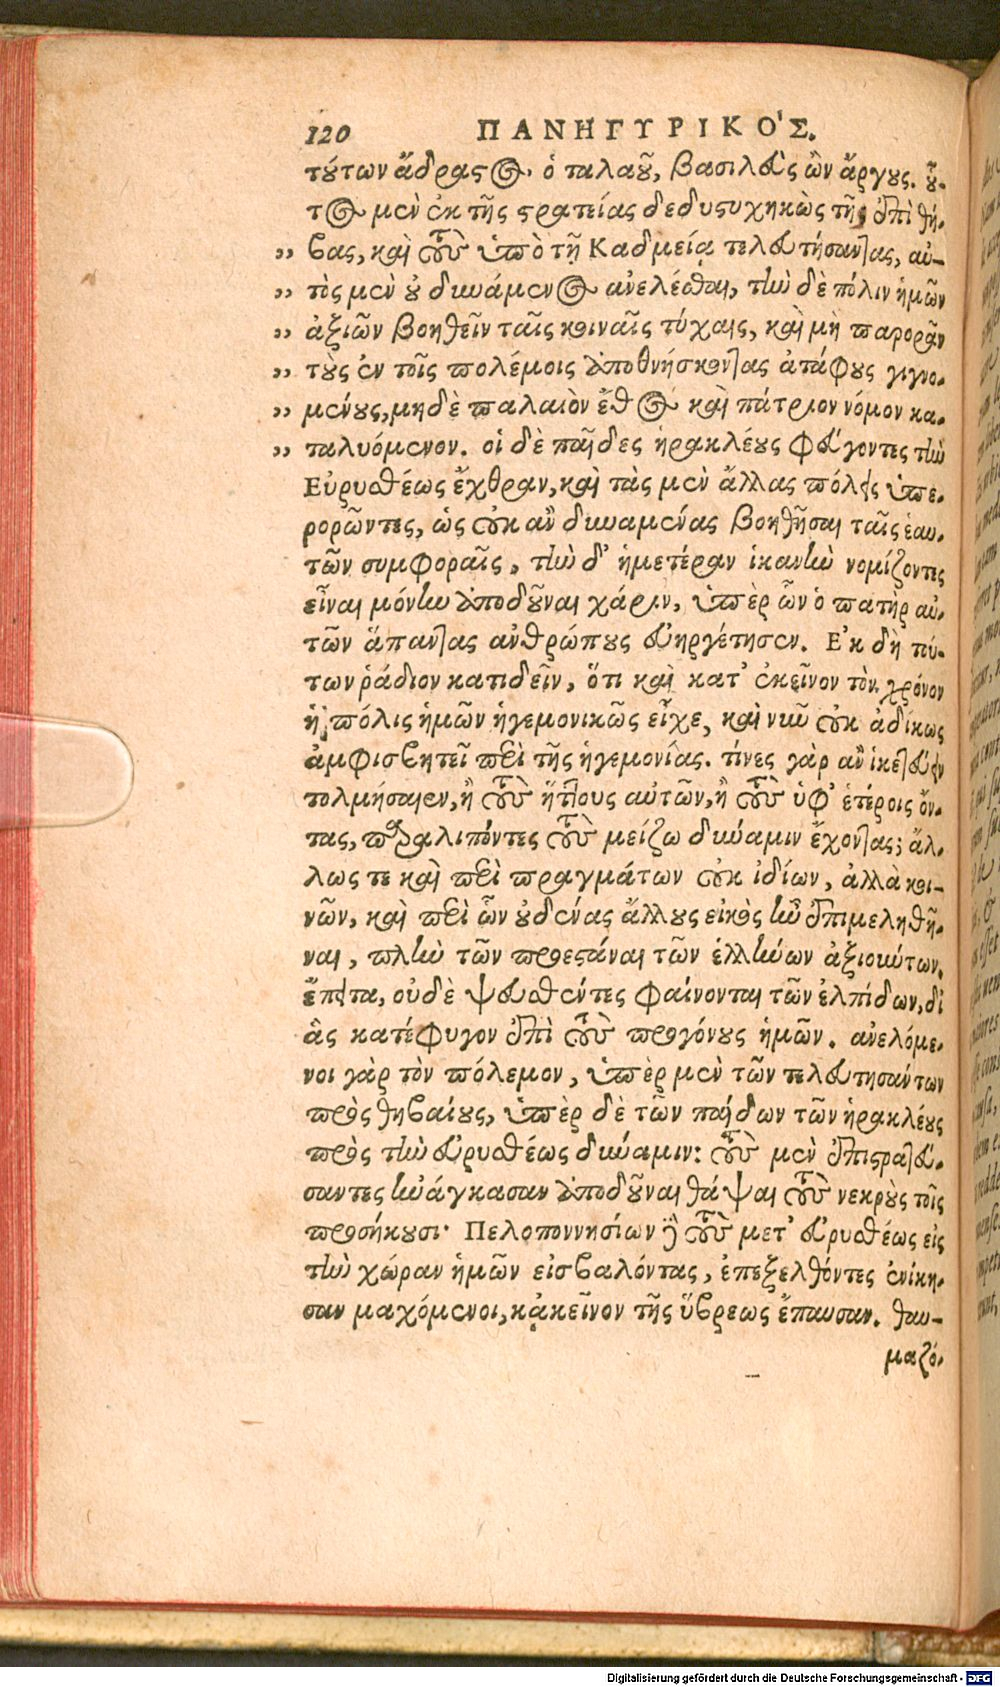 120 ΠΑΝΗΓΥΡΙΚΟ'Σ.
τούτων ἄδραστος ὁ ταλαοῦ, βασιλεὺς ὢν ἄργους. οὗ-
τος μὲν ἐκ τῆς στρατείας δεδυστυχηκὼς τῆς ἐπὶ θή-
„ βας, καὶ τοὺς ὑπὸ τῇ Καδμείᾳ τελευτήσαντας, αὐ-
„ τὸς μὲν οὐ δυνάμενος ἀνελέσθαι, τὴν δὲ πόλιν ἡμῶν
„ ἀξιῶν βοηθεῖν ταῖς κοιναῖς τύχαις, καὶ μὴ παρορᾶν
„ τοὺς ἐν τοῖς πολέμοις ἀποθνήσκοντας ἀτάφους γιγνο-
„ μένους, μηδὲ παλαιὸν ἔθος καὶ πάτριον νόμον κα-
„ ταλυόμενον. οἱ δὲ παῖδες ἡρακλέους φεύγοντες τὴν
Εὐρυσθέως ἔχθραν, καὶ τὰς μὲν ἄλλας πόλεις ὑπε-
ρορῶντες, ὡς οὐκ ἂν δυναμένας βοηθῆσαι ταῖς ἑαυ-
τῶν συμφοραῖς, τὴν δ' ἡμετέραν ἱκανὴν νομίζοντες
εἶναι μόνην ἀποδοῦναι χάριν, ὑπὲρ ὧν ὁ πατὴρ αὐ-
τῶν ἅπαντας ἀνθρώπους εὐηργέτησεν. Ἐκ δὴ τού-
των ῥάδιον κατιδεῖν, ὅτι καὶ κατ' ἐκεῖνον τὸν χρόνον
ἡ πόλις ἡμῶν ἡγεμονικῶς εἶχε, καὶ νῦν οὐκ ἀδίκως
ἀμφισβητεῖ περὶ τῆς ἡγεμονίας. τίνες γὰρ ἂν ἱκετεύειν
τολμήσαιεν, ἢ τοὺς ἥττους αὐτῶν, ἢ τοὺς ὑφ' ἑτέροις ὄν-
τας, παραλιπόντες τοὺς μείζω δύναμιν ἔχοντας; ἄλ-
λως τε καὶ περὶ πραγμάτων οὐκ ἰδίων, ἀλλὰ κοι-
νῶν, καὶ περὶ ὧν οὐδένας ἄλλους εἰκὸς ἦν ἐπιμεληθῆ-
ναι, πλὴν τῶν προεστάναι τῶν ἑλλήνων ἀξιούντων.
ἔπειτα, οὐδὲ ψευσθέντες φαίνονται τῶν ἐλπίδων, δι'
ἃς κατέφυγον ἐπὶ τοὺς προγόνους ἡμῶν. ἀνελόμε-
νοι γὰρ τὸν πόλεμον, ὑπὲρ μὲν τῶν τελευτησάντων
πρὸς θηβαίους, ὑπὲρ δὲ τῶν παίδων τῶν ἡρακλέους
πρὸς τὴν εὐρυσθέως δύναμιν: τοὺς μὲν ἐπιστρατεύ-
σαντες ἠνάγκασαν ἀποδοῦναι θάψαι τοὺς νεκροὺς τοῖς
προσήκουσι· Πελοποννησίων δὲ τοὺς μετ' εὐρυσθέως εἰς
τὴν χώραν ἡμῶν εἰσβαλόντας, ἐπεξελθόντες ἐνίκη-
σαν μαχόμενοι, κἀκεῖνον τῆς ὕβρεως ἔπαυσαν. θαυ-
μαζό-
Digitalisierung gefördert durch die Deutsche Forschungsgemeinschaft - DFG